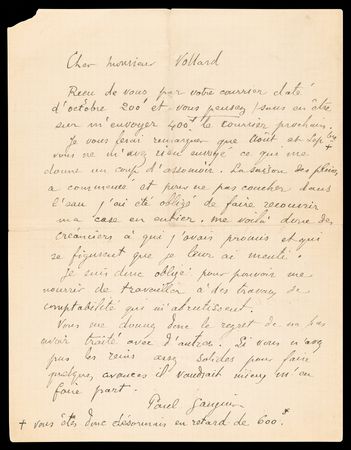 Cher Monsieur Vollard
Reçu de vous par votre courrier daté
d'octobre 200f et vous pensez, sans en être
sûr m'envoyer 400f le courrier prochain.
Je vous ferai remarquer que Août et Sep.bre +
vous ne m'avez rien envoyé ce qui me
donne un coup d'assommoir. La saison des pluies
a commencé et pour ne pas coucher dans
l'eau j'ai été obligé de faire recouvrir
ma case en entier. Me voilà donc des
créanciers à qui j'avais promis et qui
se figurent que je leur ai menti.
Je suis donc obligé pour pouvoir me
nourrir de travailler à des travaux de
comptabilité qui m'abrutissent.
Vous me donnez donc le regret de ne pas
avoir traité avec d'autres. Si vous n'avez
pas les reins assez solides pour faire
quelques avances il vaudrait mieux m'en
faire part.
Paul Gauguin
+ vous êtes donc désormais en retard de 600f